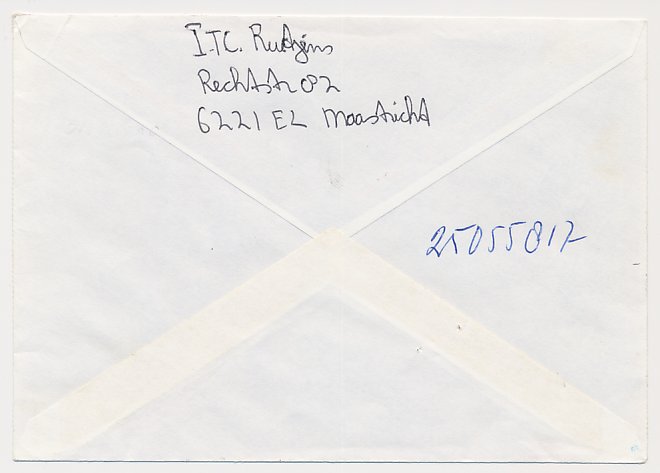 I.TC. Rutgens
Rechtstr 82
6221 EL Maastricht
25055817